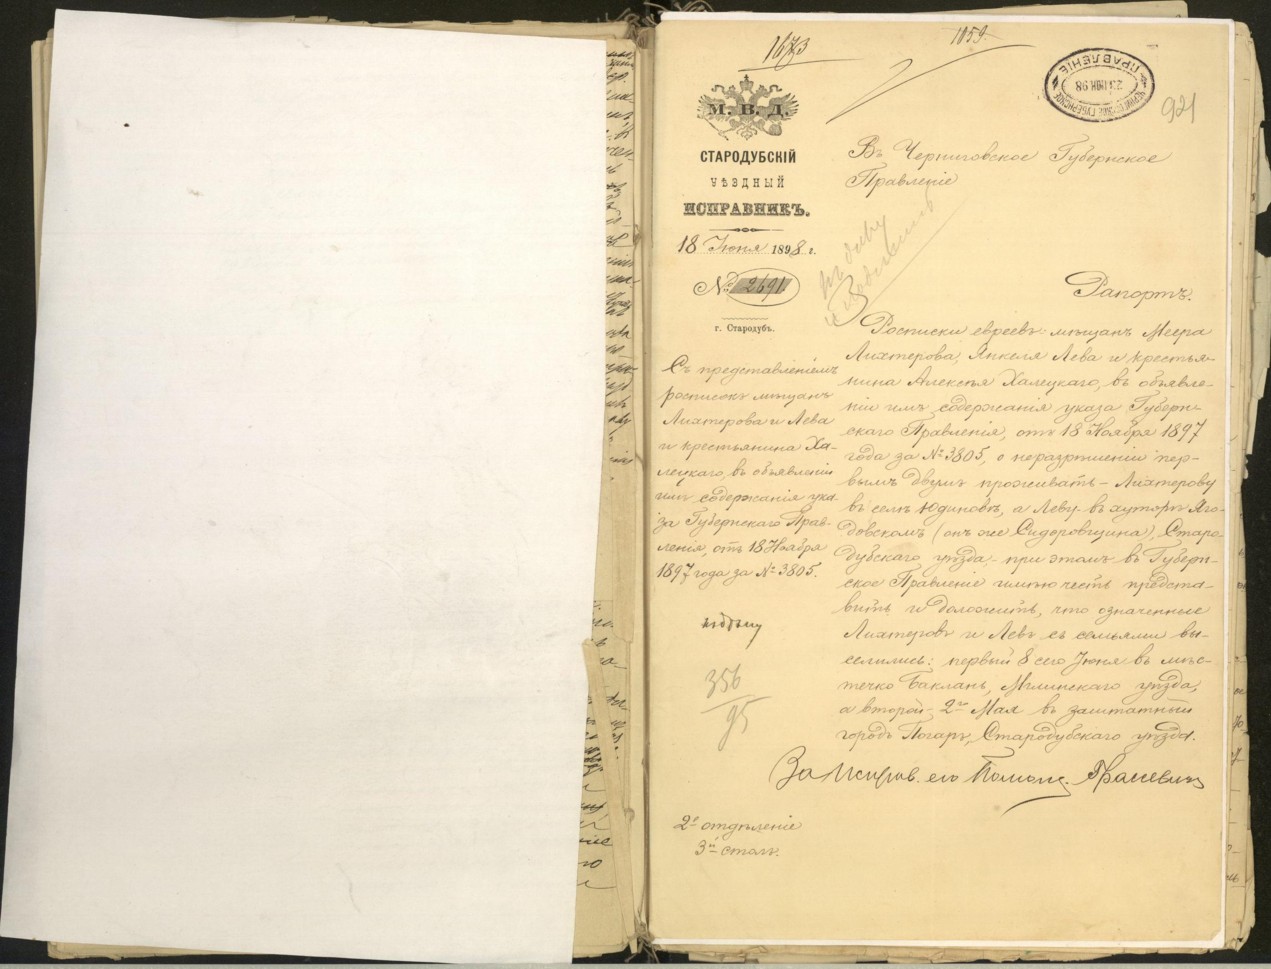 1673
1059
921
М. В. Д.
СТАРОДУБСКІЙ
УѢЗДНЫЙ
ИСПРАВНИКЪ.
18 Іюня 1898 г.
№ 2691
г. Стародубъ.
Съ представленіемъ
росписокъ мѣщанъ
Лихтерова и Лева
и крестьянина Ха-
лецкаго, въ объявленіи
имъ содержанія ука-
за Губернскаго Прав-
ленія, отъ 18 Ноября
1897 года за № 3805.
356
95
2е отдѣленіе
3й столъ.
ЧЕРНИГОВСКОЕ ГУБЕРНСКОЕ ПРАВЛЕНІЕ
23 ІЮН 98
Въ Черниговское Губернское
Правленіе
къ дѣлу
Рапортъ.
Росписки евреевъ: мѣщанъ Меера
Лихтерова, Янкеля Лева и крестья-
нина Алексѣя Халецкаго, въ объявле-
ніи имъ содержанія указа Губерн-
скаго Правленія, отъ 18 Ноября 1897
года за № 3805, о неразрѣшеніи пер-
вымъ двумъ проживать – Лихтерову
въ селѣ Юдиновѣ, а Леву въ хуторѣ Яго-
довскомъ (онъ же Сидоровщина), Старо-
дубскаго уѣзда, – при этомъ въ Губерн-
ское Правленіе имѣю честь предста-
вить и доложить, что означенные
Лихтеровъ и Левъ съ семьями вы-
селились: первый 8 сего Іюня въ мѣс-
течко Бакланъ, Мглинскаго уѣзда,
а второй – 2го Мая въ заштатный
городъ Погаръ, Стародубскаго уѣзда.
За Исправ. его Помощ.